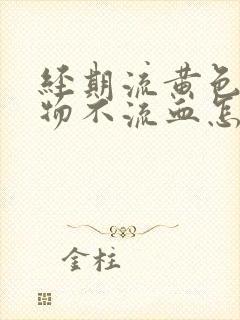 经期流黄色
物不流血怎
金柱